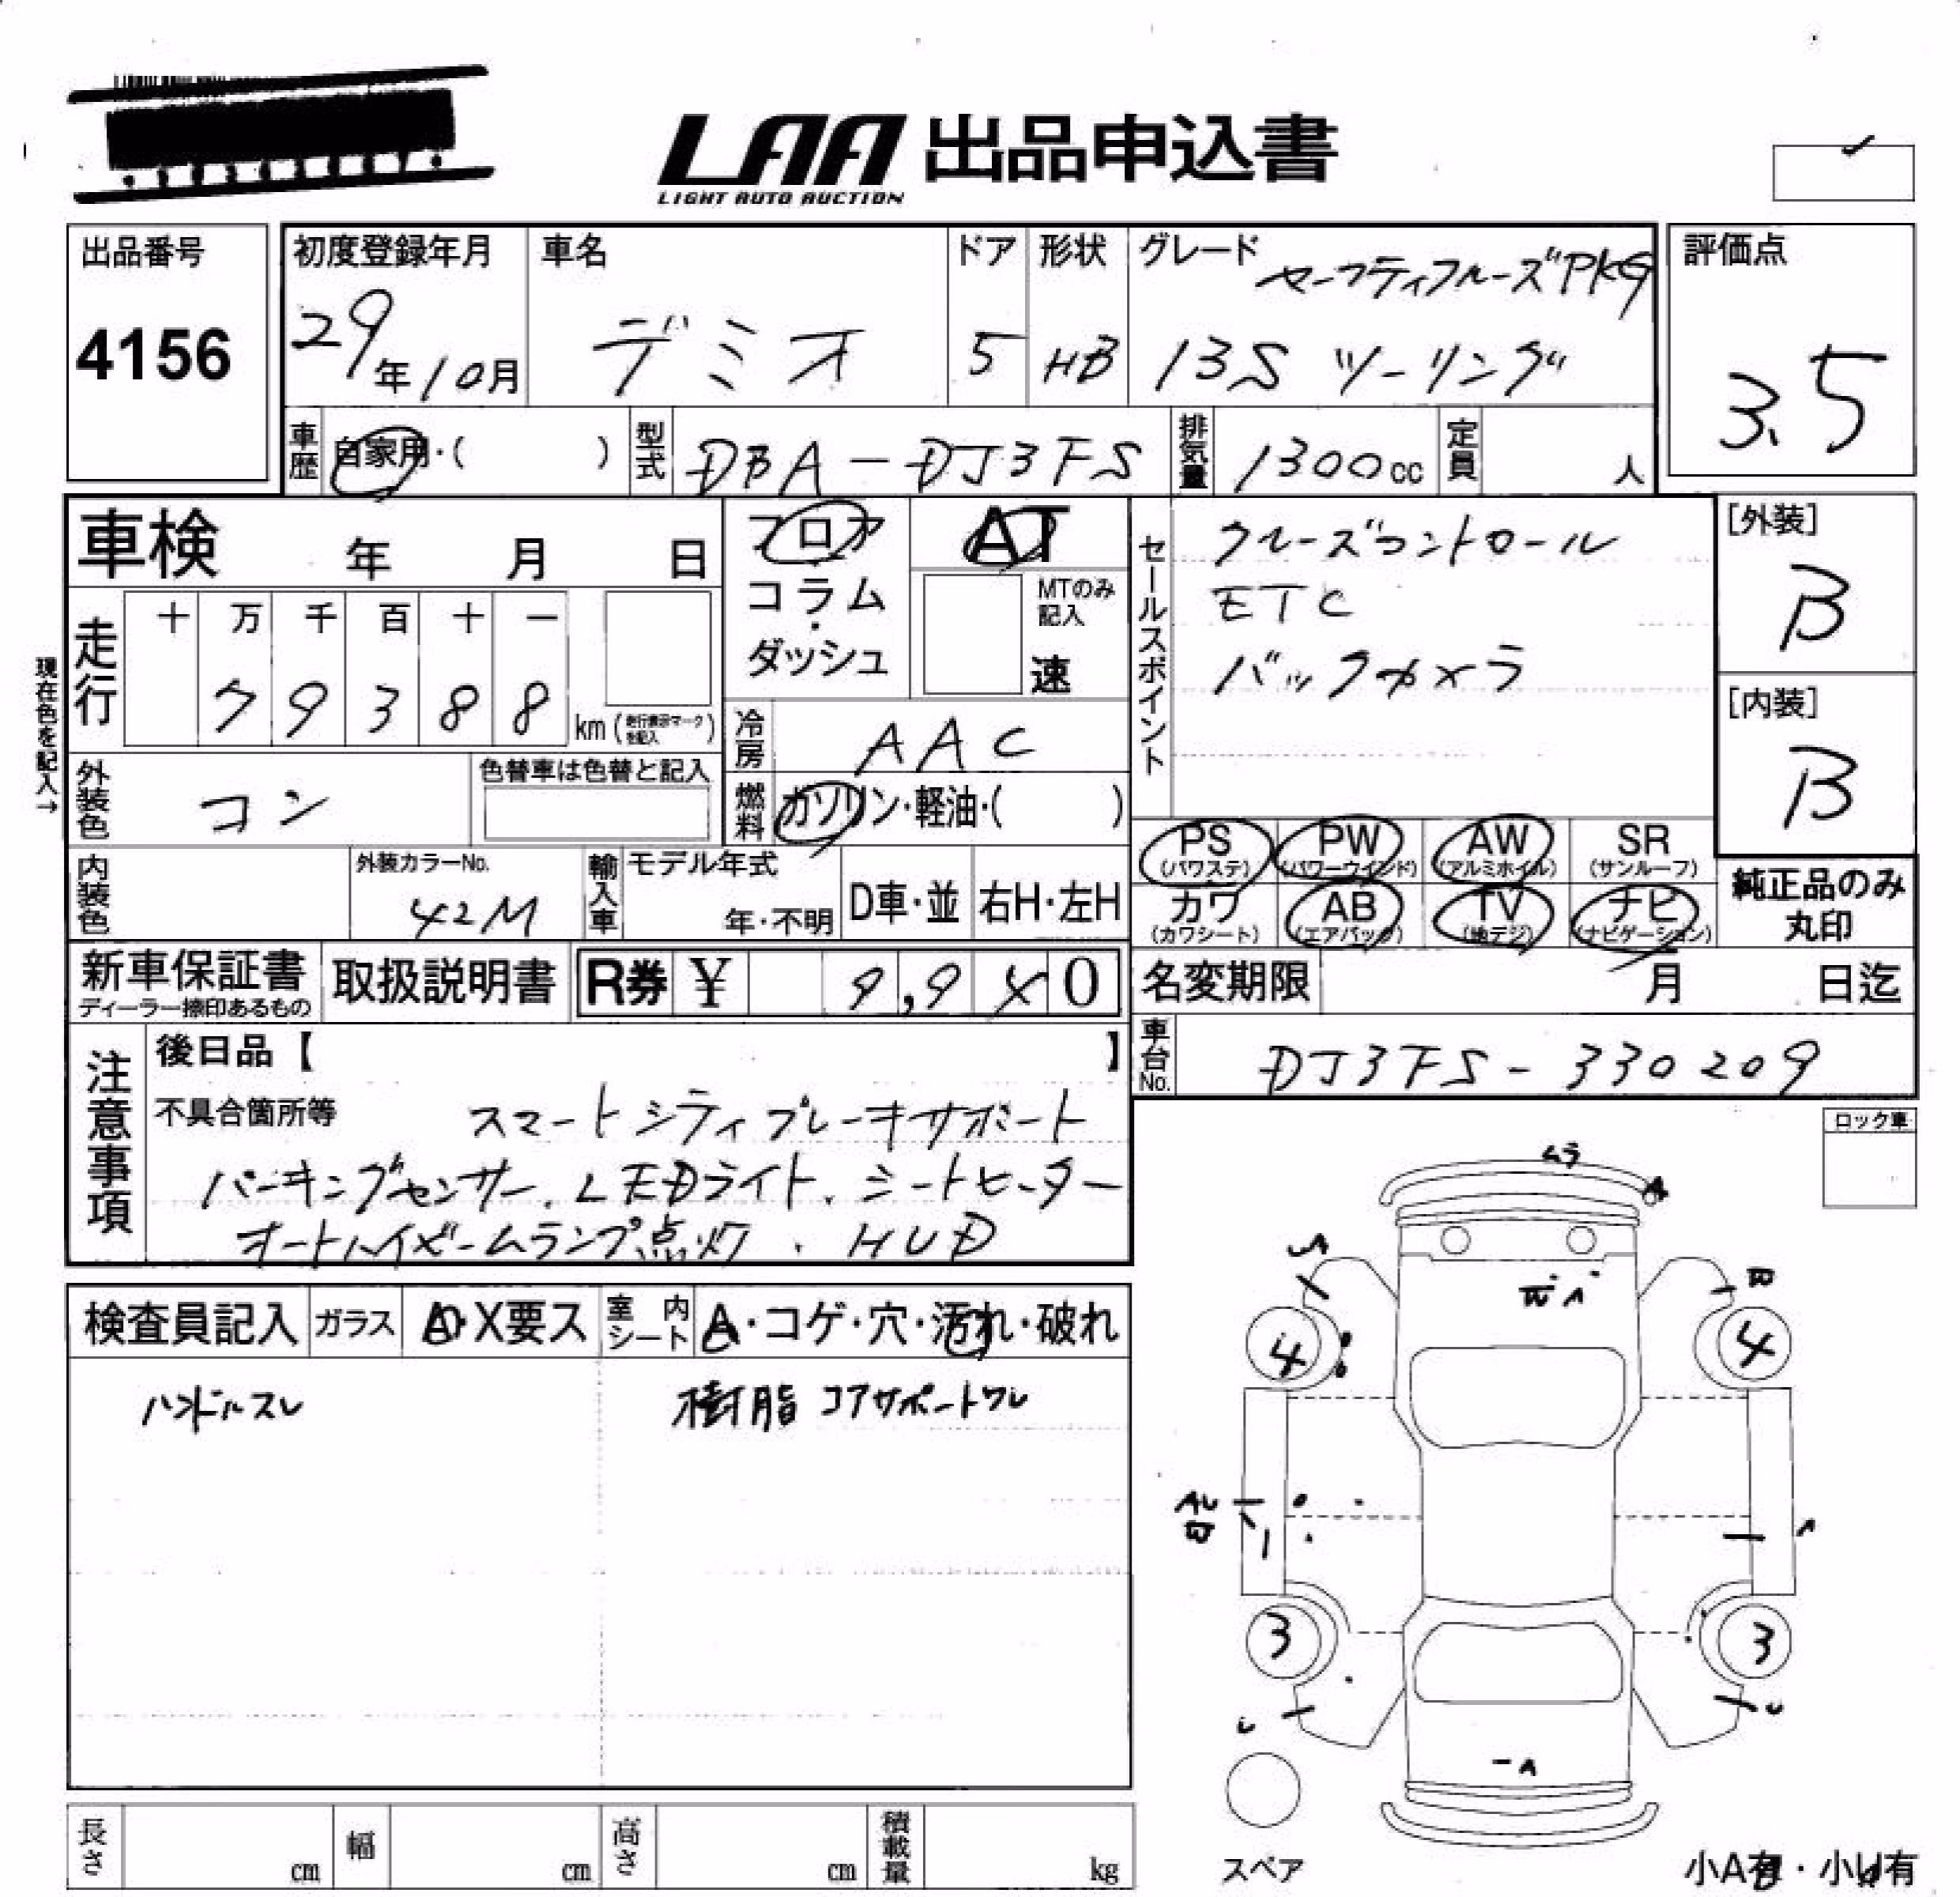 LAA 出品申込書
LIGHT AUTO AUCTION
出品番号
4156
初度登録年月
29年10月
車名
デミオ
ドア
5
形状
HB
グレード
セーフティクルーズPKG
13S ツーリング
評価点
3.5
車歴
自家用・( )
型式
DBA-DJ3FS
排気量
1300cc
定員
人
車検 年 月 日
フロア
コラム・
ダッシュ
AT
MTのみ
記入
速
セールスポイント
クルーズコントロール
ETC
バックカメラ
[外装]
B
[内装]
B
現在色を記入→
走行
十 万 千 百 十 一
7 9 3 8 8 km (走行表示マークを記入)
冷房
AAC
外装色
コン
色替車は色替と記入
燃料
ガソリン・軽油・( )
PS
(パワステ)
PW
(パワーウインド)
AW
(アルミホイル)
SR
(サンルーフ)
カワ
(カワシート)
AB
(エアバック)
TV
(地デジ)
ナビ
(ナビゲーション)
純正品のみ
丸印
内装色
外装カラーNo.
42M
輸入車
モデル年式
年・不明
D車・並
右H・左H
新車保証書
ディーラー捺印あるもの
取扱説明書
R券 ¥ 9,940
名変期限 月 日迄
車台No.
DJ3FS-330209
注意事項
後日品【 】
不具合箇所等
スマートシティブレーキサポート
パーキングセンサー、LEDライト、シートヒーター
オートハイビームランプ点灯、HUD
ロック車
検査員記入
ガラス
A・X要ス
室内シート
A・コゲ・穴・汚れ・破れ
ハンドルスレ
樹脂 コアサポートワレ
ムラ
A
A
4
4
A
3
3
U
U
A
スペア
小A有・小U有
長さ cm
幅 cm
高さ cm
積載量 kg